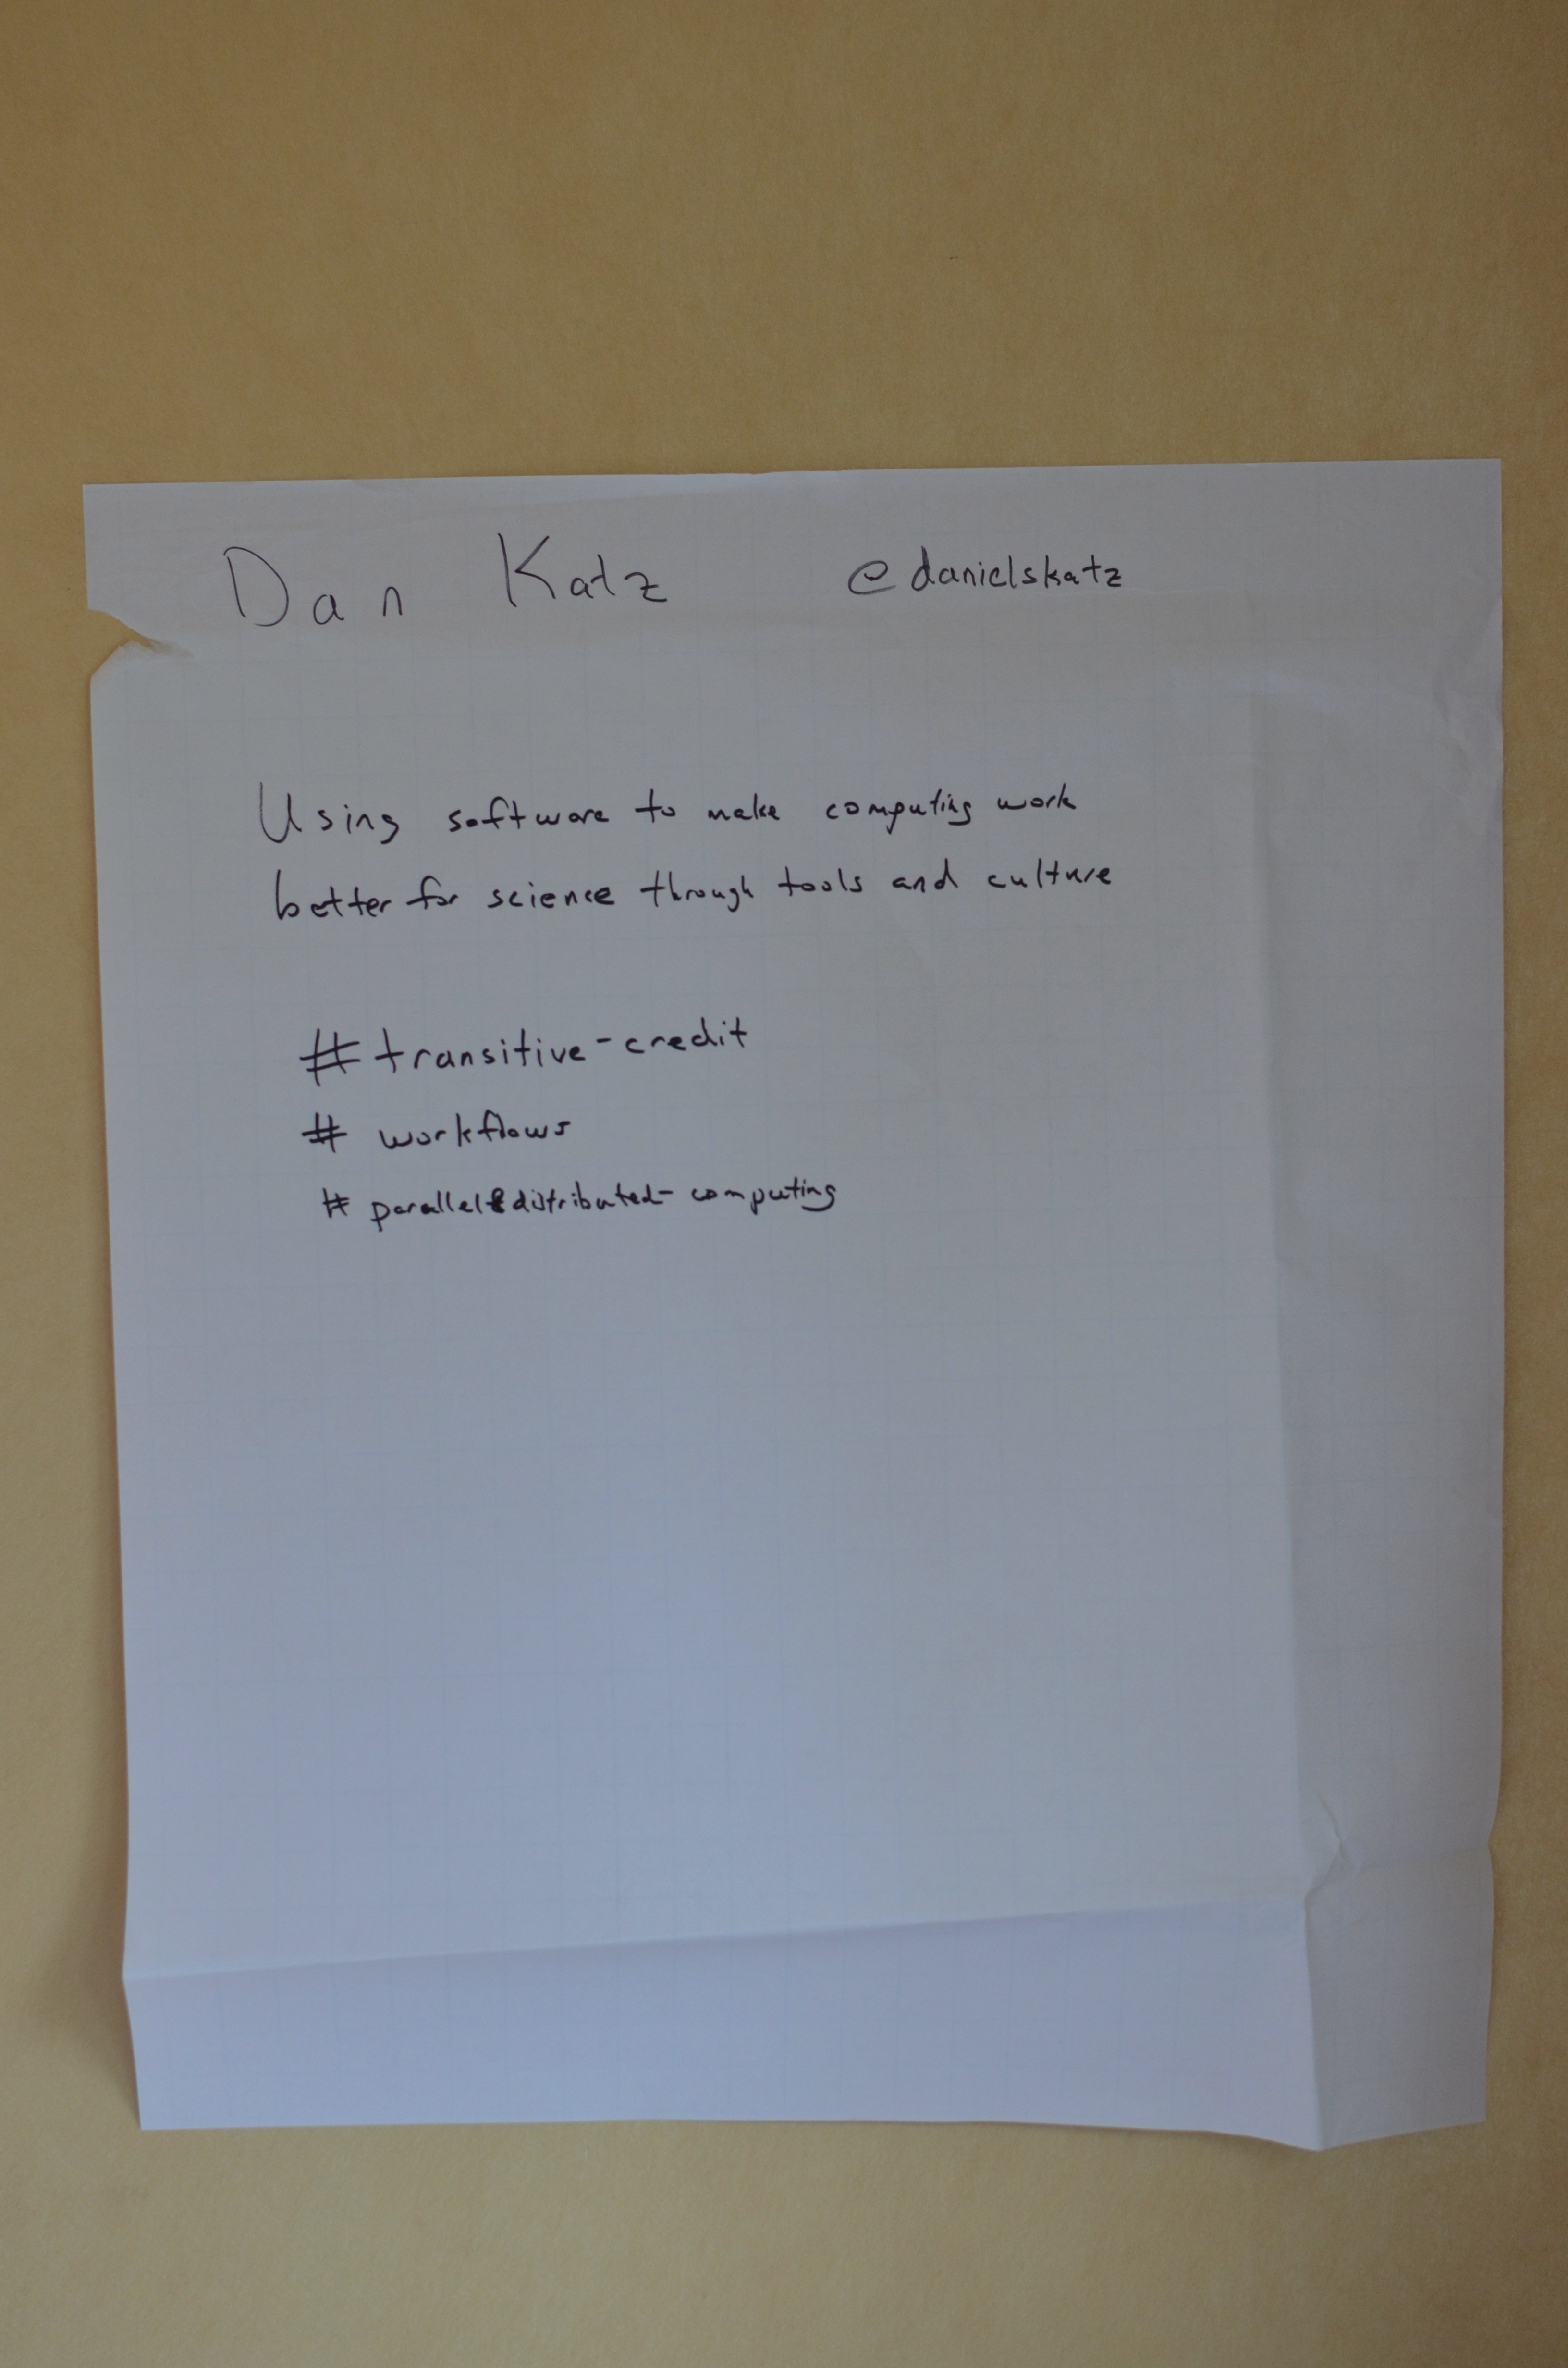 Dan Katz @danielskatz
Using software to make computing work
better for science through tools and culture
#transitive-credit
# workflows
# parallel&distributed-computing